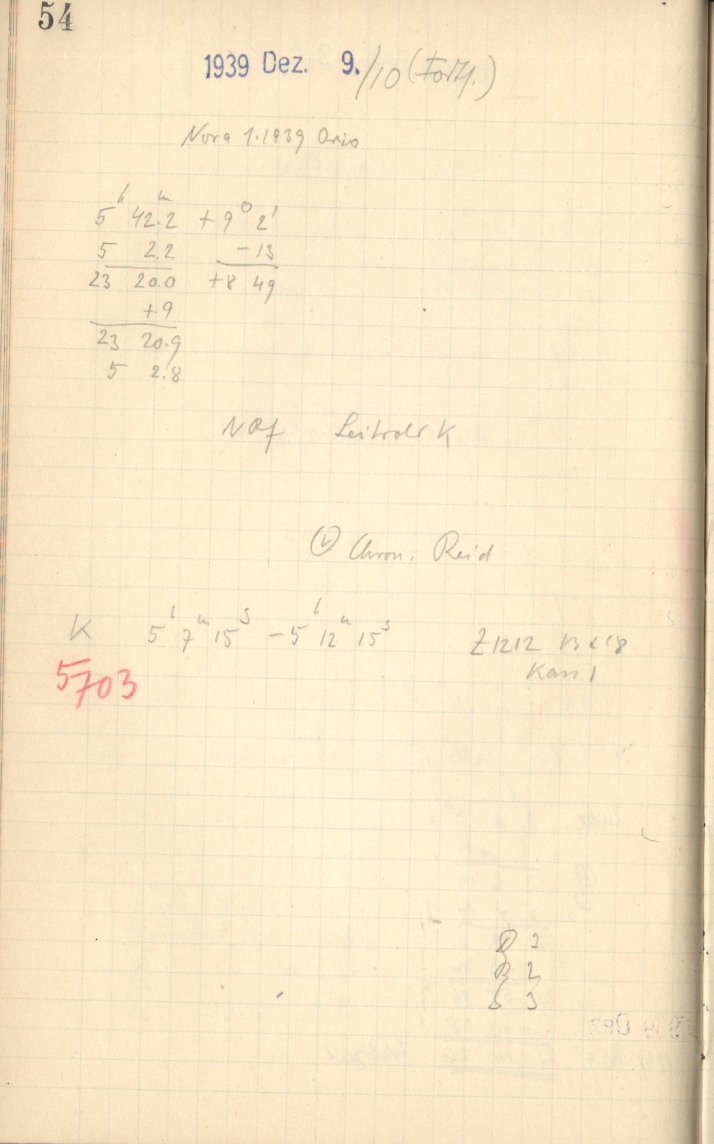 54
1939 Dez. 9./10 (Forts.)
Nova 1.1939 Orio
5ʰ 42.2ᵐ +9° 2'
5 2.2 -13
23 20.0 +8 49
+9
23 20.9
5 2.8
Leitrohr K
Chron. Reid
K 5ʰ 7ᵐ 15ˢ - 5ʰ 12ᵐ 15ˢ Z1212 13x18
5703
D 2
B 2
S 3